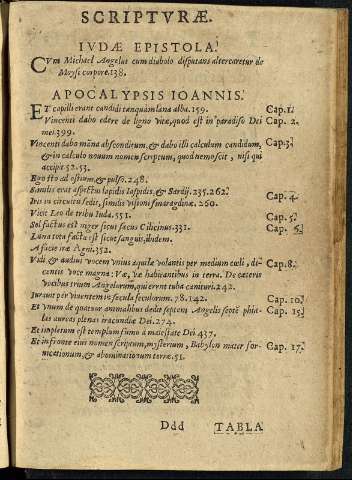 SCRIPTVRÆ.
IVDÆ EPISTOLA.
CVm Michael Angelus cum diabolo disputans altercaretur de
Moyse corpore. 138.
APOCALYPSIS IOANNIS.
ET capilli erant candidi tanquam lana alba. 159. Cap. 1.
Vincenti dabo edere de ligno vitæ, quod est in paradiso Dei Cap. 2.
mei. 399.
Vincenti dabo māna absconditum, & dabo illi calculum candidum, Cap. 3.
& in calculo nouum nomen scriptum, quod nemo scit, nisi qui
accipit. 52. 53.
Ego sto ad ostium, & pulso. 248.
Similis erat aspectui lapidis Iaspidis, & Sardij. 235. 262. Cap. 4.
Iris in circuitu sedis, similis visioni smaragdinæ. 260.
Vicit Leo de tribu Iuda. 551. Cap. 5.
Sol factus est niger sicut saccus Cilicinus. 331. Cap. 6.
Luna tota facta est sicut sanguis, ibidem.
A facie iræ Agni. 352.
Vidi & audiui vocem vnius aquilæ volantis per medium cæli, di- Cap. 8.
centis voce magna: Væ, væ habitantibus in terra. De cæteris
vocibus trium Angelorum, qui erant tuba canituri. 242.
Iurauit per viuentem in sæcula sæculorum. 78. 142. Cap. 10.
Et vnum de quatuor animalibus dedit septem Angelis septē phia- Cap. 15.
las aureas plenas iracundiæ Dei. 274.
Et impletum est templum fumo à maiestate Dei. 437.
Et in fronte eius nomen scriptum, mysterium, Babylon mater for- Cap. 17.
nicationum, & abominationum terræ. 51.
Ddd TABLA